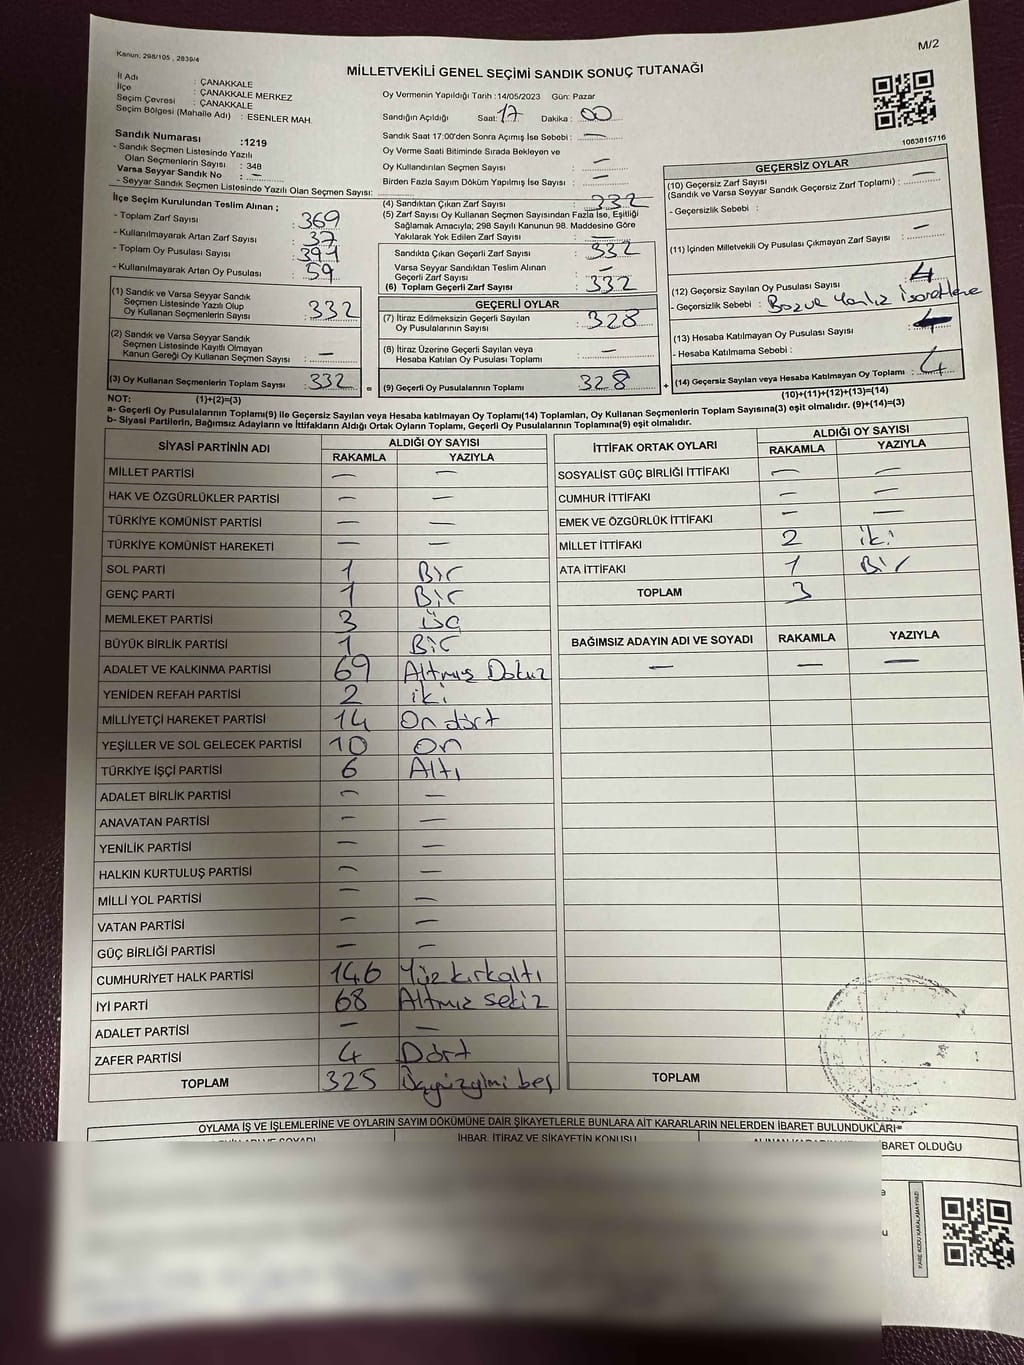 Kanun, 298/105 , 2839/4
M/2
MİLLETVEKİLİ GENEL SEÇİMİ SANDIK SONUÇ TUTANAĞI
İl Adı : ÇANAKKALE
İlçe : ÇANAKKALE MERKEZ
Seçim Çevresi : ÇANAKKALE
Seçim Bölgesi (Mahalle Adı) : ESENLER MAH.
Sandık Numarası :1219
- Sandık Seçmen Listesinde Yazılı
Olan Seçmenlerin Sayısı : 348
Varsa Seyyar Sandık No : —
- Seyyar Sandık Seçmen Listesinde Yazılı Olan Seçmen Sayısı:
Oy Vermenin Yapıldığı Tarih :14/05/2023 Gün: Pazar
Sandığın Açıldığı Saat: 17 Dakika : 00
Sandık Saat 17:00'den Sonra Açımış İse Sebebi : —
Oy Verme Saati Bitiminde Sırada Bekleyen ve
Oy Kullandırılan Seçmen Sayısı : —
Birden Fazla Sayım Döküm Yapılmış İse Sayısı : —
1083815716
İlçe Seçim Kurulundan Teslim Alınan ;
- Toplam Zarf Sayısı : 369
- Kullanılmayarak Artan Zarf Sayısı : 37
- Toplam Oy Pusulası Sayısı :
- Kullanılmayarak Artan Oy Pusulası : 59
(1) Sandık ve Varsa Seyyar Sandık
Seçmen Listesinde Yazılı Olup
Oy Kullanan Seçmenlerin Sayısı : 332
(2) Sandık ve Varsa Seyyar Sandık
Seçmen Listesinde Kayıtlı Olmayan
Kanun Gereği Oy Kullanan Seçmen Sayısı : —
(3) Oy Kullanan Seçmenlerin Toplam Sayısı : 332 =
(1)+(2)=(3)
(4) Sandıktan Çıkan Zarf Sayısı : 332
(5) Zarf Sayısı Oy Kullanan Seçmen Sayısından Fazla İse, Eşitliği
Sağlamak Amacıyla; 298 Sayılı Kanunun 98. Maddesine Göre
Yakılarak Yok Edilen Zarf Sayısı : —
Sandıkta Çıkan Geçerli Zarf Sayısı : 332
Varsa Seyyar Sandıktan Teslim Alınan
Geçerli Zarf Sayısı : —
(6) Toplam Geçerli Zarf Sayısı : 332
GEÇERLİ OYLAR
(7) İtiraz Edilmeksizin Geçerli Sayılan
Oy Pusulalarının Sayısı : 328
(8) İtiraz Üzerine Geçerli Sayılan veya
Hesaba Katılan Oy Pusulası Toplamı : —
(9) Geçerli Oy Pusulalarının Toplamı : 328 +
GEÇERSİZ OYLAR
(10) Geçersiz Zarf Sayısı
(Sandık ve Varsa Seyyar Sandık Geçersiz Zarf Toplamı) : —
- Geçersizlik Sebebi :
(11) İçinden Milletvekili Oy Pusulası Çıkmayan Zarf Sayısı : —
(12) Geçersiz Sayılan Oy Pusulası Sayısı : 4
- Geçersizlik Sebebi :
(13) Hesaba Katılmayan Oy Pusulası Sayısı :
- Hesaba Katılmama Sebebi :
(14) Geçersiz Sayılan veya Hesaba Katılmayan Oy Toplamı : 4
(10)+(11)+(12)+(13)=(14)
NOT:
a- Geçerli Oy Pusulalarının Toplamı(9) ile Geçersiz Sayılan veya Hesaba katılmayan Oy Toplamı(14) Toplamları, Oy Kullanan Seçmenlerin Toplam Sayısına(3) eşit olmalıdır. (9)+(14)=(3)
b- Siyasi Partilerin, Bağımsız Adayların ve İttifakların Aldığı Ortak Oyların Toplamı, Geçerli Oy Pusulalarının Toplamına(9) eşit olmalıdır.
SİYASİ PARTİNİN ADI ALDIĞI OY SAYISI
RAKAMLA YAZIYLA
MİLLET PARTİSİ — —
HAK VE ÖZGÜRLÜKLER PARTİSİ — —
TÜRKİYE KOMÜNİST PARTİSİ — —
TÜRKİYE KOMÜNİST HAREKETİ — —
SOL PARTİ 1 Bir
GENÇ PARTİ 1 Bir
MEMLEKET PARTİSİ 3 üç
BÜYÜK BİRLİK PARTİSİ 1 Bir
ADALET VE KALKINMA PARTİSİ 69 Altmış Dokuz
YENİDEN REFAH PARTİSİ 2 iki
MİLLİYETÇİ HAREKET PARTİSİ 14 On dört
YEŞİLLER VE SOL GELECEK PARTİSİ 10 on
TÜRKİYE İŞÇİ PARTİSİ 6 Altı
ADALET BİRLİK PARTİSİ — —
ANAVATAN PARTİSİ — —
YENİLİK PARTİSİ — —
HALKIN KURTULUŞ PARTİSİ — —
MİLLİ YOL PARTİSİ — —
VATAN PARTİSİ — —
GÜÇ BİRLİĞİ PARTİSİ — —
CUMHURİYET HALK PARTİSİ 146 Yüzkırkaltı
İYİ PARTİ 68 Altmış sekiz
ADALET PARTİSİ — —
ZAFER PARTİSİ 4 Dört
TOPLAM 325 Üçyüzyirmi beş
İTTİFAK ORTAK OYLARI ALDIĞI OY SAYISI
RAKAMLA YAZIYLA
SOSYALİST GÜÇ BİRLİĞİ İTTİFAKI — —
CUMHUR İTTİFAKI — —
EMEK VE ÖZGÜRLÜK İTTİFAKI — —
MİLLET İTTİFAKI 2 iki
ATA İTTİFAKI 1 Bir
TOPLAM 3
BAĞIMSIZ ADAYIN ADI VE SOYADI RAKAMLA YAZIYLA
— — —
TOPLAM
OYLAMA İŞ VE İŞLEMLERİNE VE OYLARIN SAYIM DÖKÜMÜNE DAİR ŞİKAYETLERLE BUNLARA AİT KARARLARIN NELERDEN İBARET BULUNDUKLARI
İHBAR, İTİRAZ VE ŞİKAYETİN KONUSU
İBARET OLDUĞU